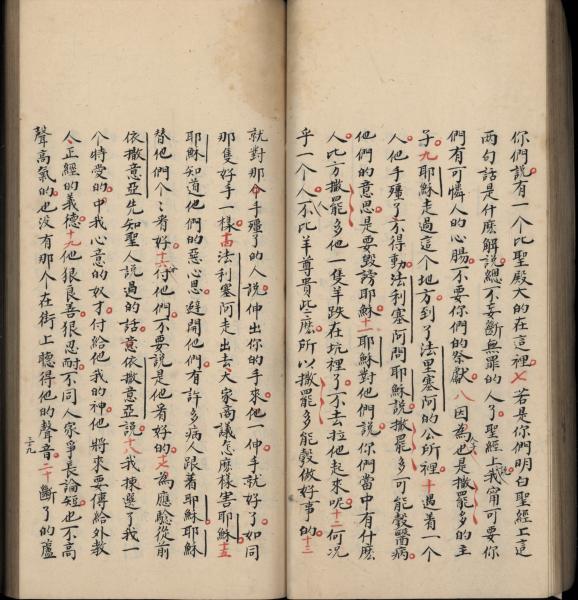 你們說有一个比聖殿大的在這裡七若是你們明白聖經上這
两句話是什麽解說總不妄斷無罪的人了聖經上我甯可要你
們有可憐人的心腸不要你們的祭獻八因為人子也是撒罷多的主
子九耶穌走過這個地方到了法里塞阿的公所裡十遇着一个
人他手殭了不得動法利塞阿問耶穌說撒罷多可能彀醫病
他們的意思是要毀謗耶穌十一耶穌對他們說你們當中有什麽
人比方撒罷多他一隻羊跌在坑裡了不去拉他起來呢十二何况
乎一个人不比羊尊貴些麽所以撒罷多能彀做好事的十三
就對那个手殭了的人說伸出你的手來他一伸手就好了如同
那隻好手一樣十四法利塞阿走出去大家商議怎麽樣害耶穌十五
耶穌知道他們的惡心思避開他們有許多病人跟着耶穌耶穌
替他們个々看好十六吩付他們不要說是他看好的十七為應驗從前
依撒意亞先知聖人說過的話意依撒意亞說十八我揀選了我一
个特受的中我心意的奴才付給他我的神他將來要傳給外教
人正經的義德十九他狠良善狠忍耐不同人家爭長論短也不高
聲高氣的也没有那个在街上聽得他的聲音二十斷了的蘆